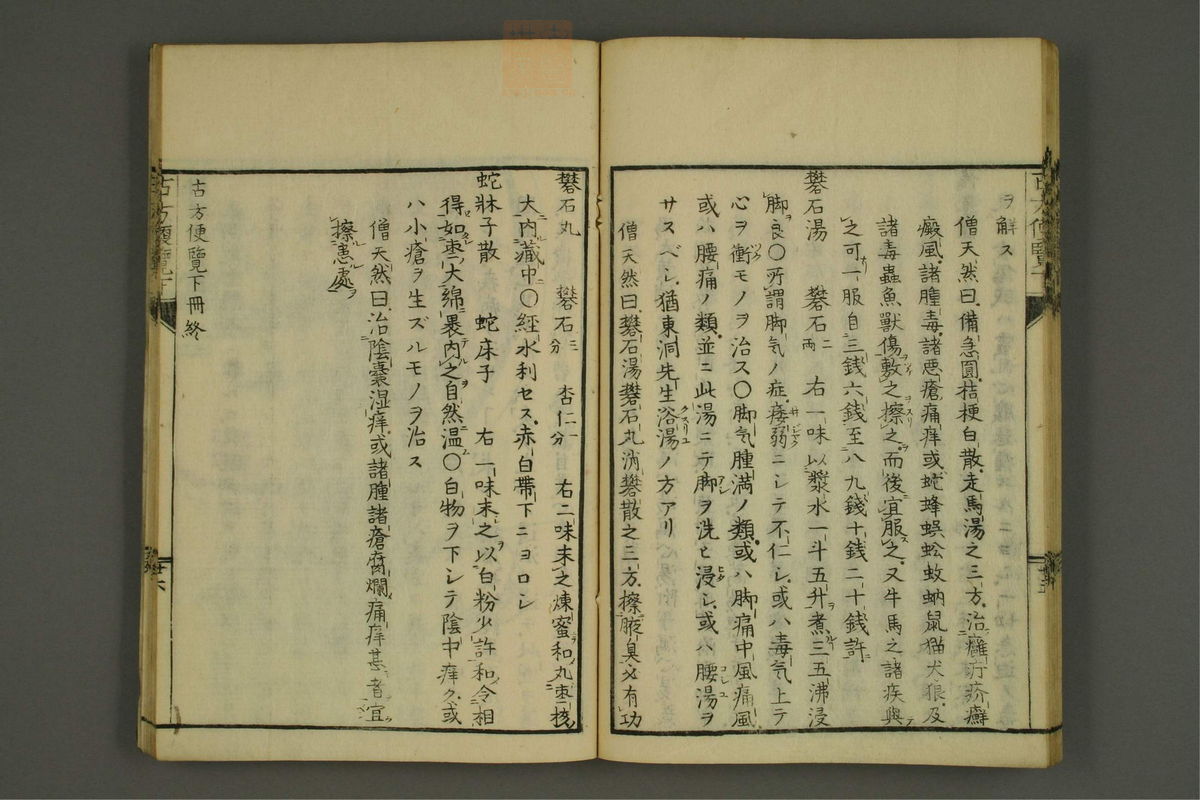 ヲ解ス
僧天然曰備急圓桔梗白散走馬湯之三方治癰疔疥癬
癜風諸腫毒諸悪瘡痛痒或蛇蜂蜈蚣蚊蚋鼠猫犬狼及
諸毒蟲魚獸傷敷之擦之而後宜服之又牛馬之諸疾與
之可一服自三銭六銭至八九銭十銭二十銭許
礬石湯 礬石二兩 右一味以漿水一斗五升煮三五沸浸
脚良〇所謂脚気ノ症痿弱ニシテ不仁シ或ハ毒気上テ
心ヲ衝モノヲ治ス〇脚気腫満ノ類或ハ脚痛中風痛風
或ハ腰痛ノ類並ニ此湯ニテ脚ヲ洗ヒ浸シ或ハ腰湯ヲ
サスベシ猶東洞先生浴湯ノ方アリ
僧天然曰礬石湯礬石丸消礬散之三方擦腋臭必有功
礬石丸 礬石三分 杏仁一分 右二味末之煉蜜和丸棗核
大内藏中〇經水利セス赤白帶下ニヨロシ
蛇牀子散 蛇床子 右一味末之以白粉少許和令相
得如棗大綿裹内之自然温〇白物ヲ下シテ陰中痒ク或
ハ小瘡ヲ生ズルモノヲ治ス
僧天然曰治陰嚢湿痒或諸腫諸瘡腐爛痛痒甚者宜
擦患處
古方便覽下冊終
古方便覽下
廿六